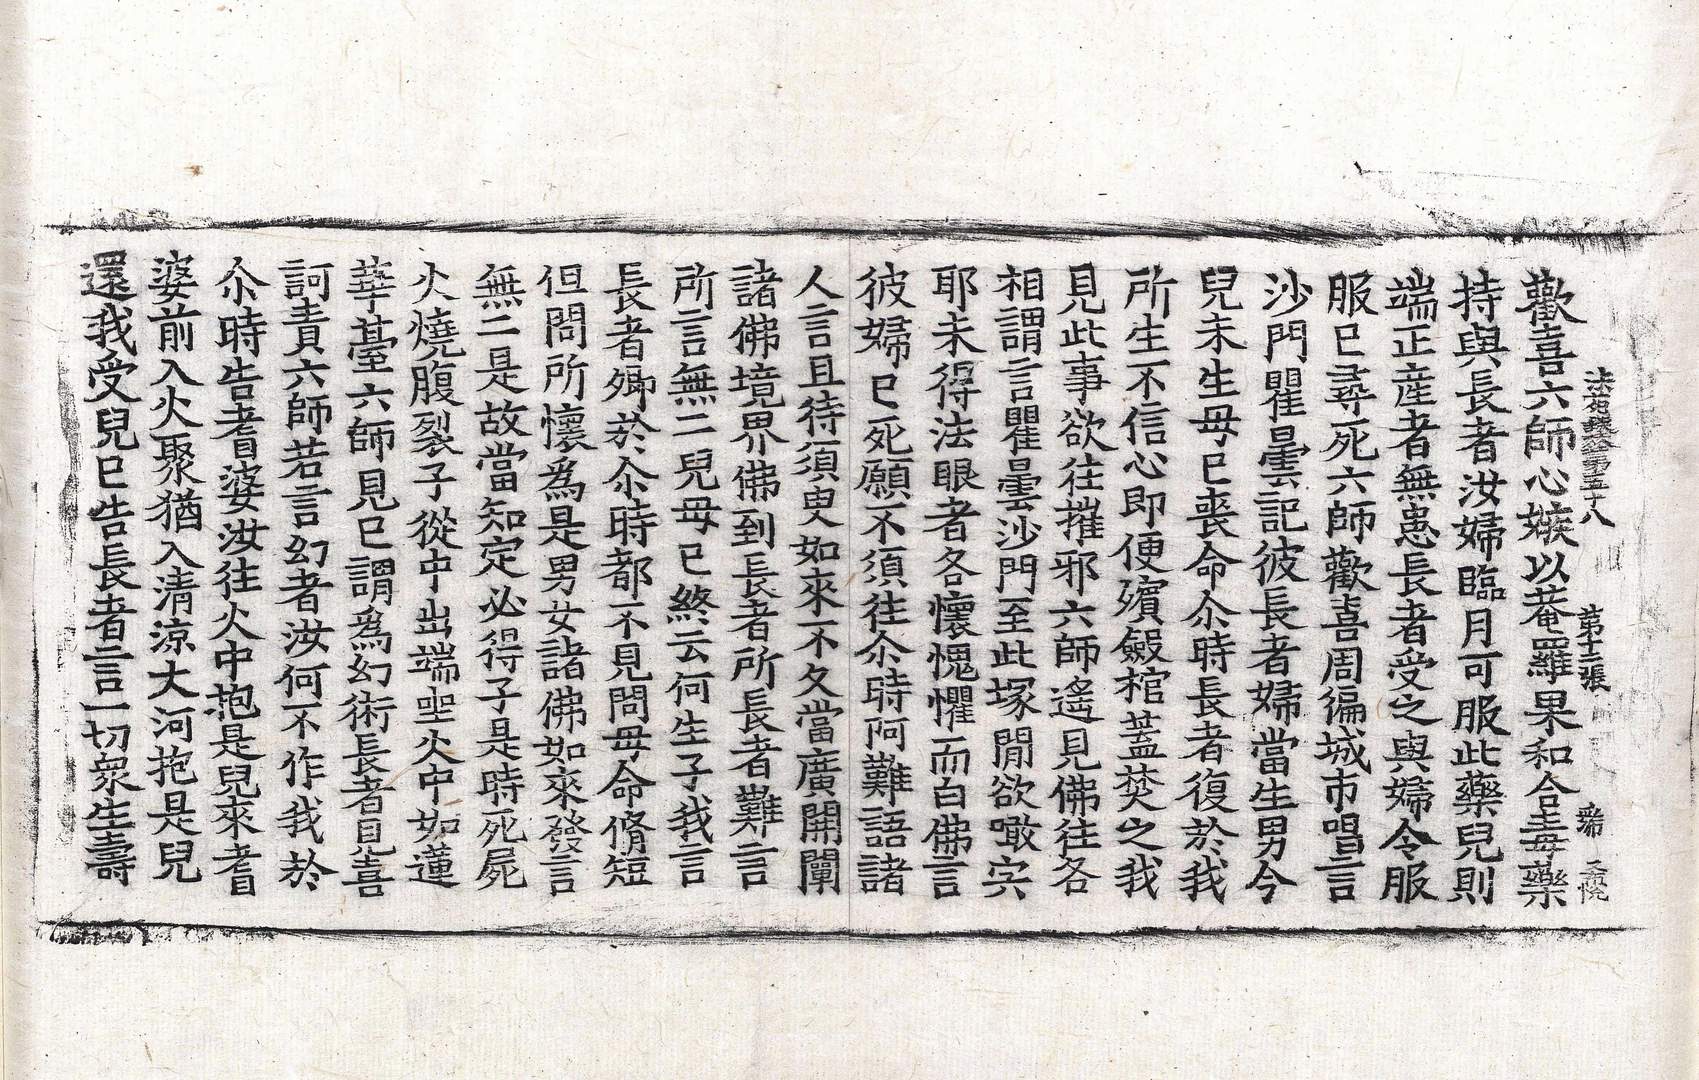 法苑珠林卷第五十八　第十二張
歡喜六師心嫉以菴羅果和合毒藥
持與長者汝婦臨月可服此藥兒則
端正産者無患長者受之與婦令服
服已尋死六師歡喜周徧城市唱言
沙門瞿曇記彼長者婦當生男今
兒未生母已喪命尒時長者復於我
所生不信心即便殯殮棺蓋焚之我
見此事欲往摧邪六師遙見佛往各
相謂言瞿曇沙門至此塚閒欲噉宍
耶未得法眼者各懷愧懼而白佛言
彼婦已死願不須往尒時阿難語諸
人言且待須臾如來不久當廣開闡
諸佛境界佛到長者所長者難言
所言無二兒母已終云何生子我言
長者卿於尒時都不見問母命脩短
但問所懷爲是男女諸佛如來發言
無二是故當知定必得子是時死屍
火燒腹裂子從中出端坐火中如蓮
華臺六師見已謂爲幻術長者見喜
訶責六師若言幻者汝何不作我於
尒時告耆婆汝往火中抱是兒來耆
婆前入火聚猶入清涼大河抱是兒
還我受兒已告長者言一切衆生壽